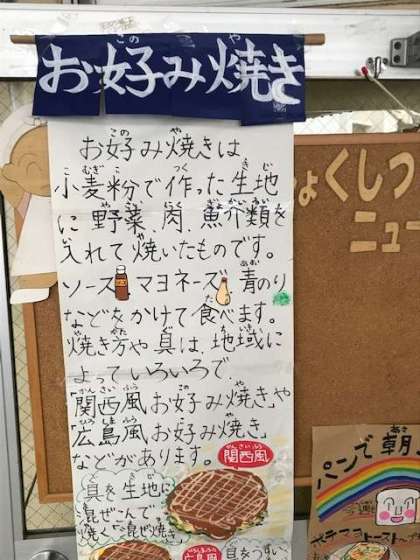 お好み焼き
お好み焼きは
小麦粉で作った生地
に野菜、肉、魚介類を
入れて焼いたものです。
ソース マヨネーズ 青のり
などをかけて食べます。
焼き方や具は地域に
よっていろいろで
「関西風お好み焼き」や
「広島風お好み焼き」
などがあります。
関西風
具を生地に
混ぜこんで
焼く"混ぜ焼き"
広島風
具をうすい
ょくしつ
ニュー
パンで朝